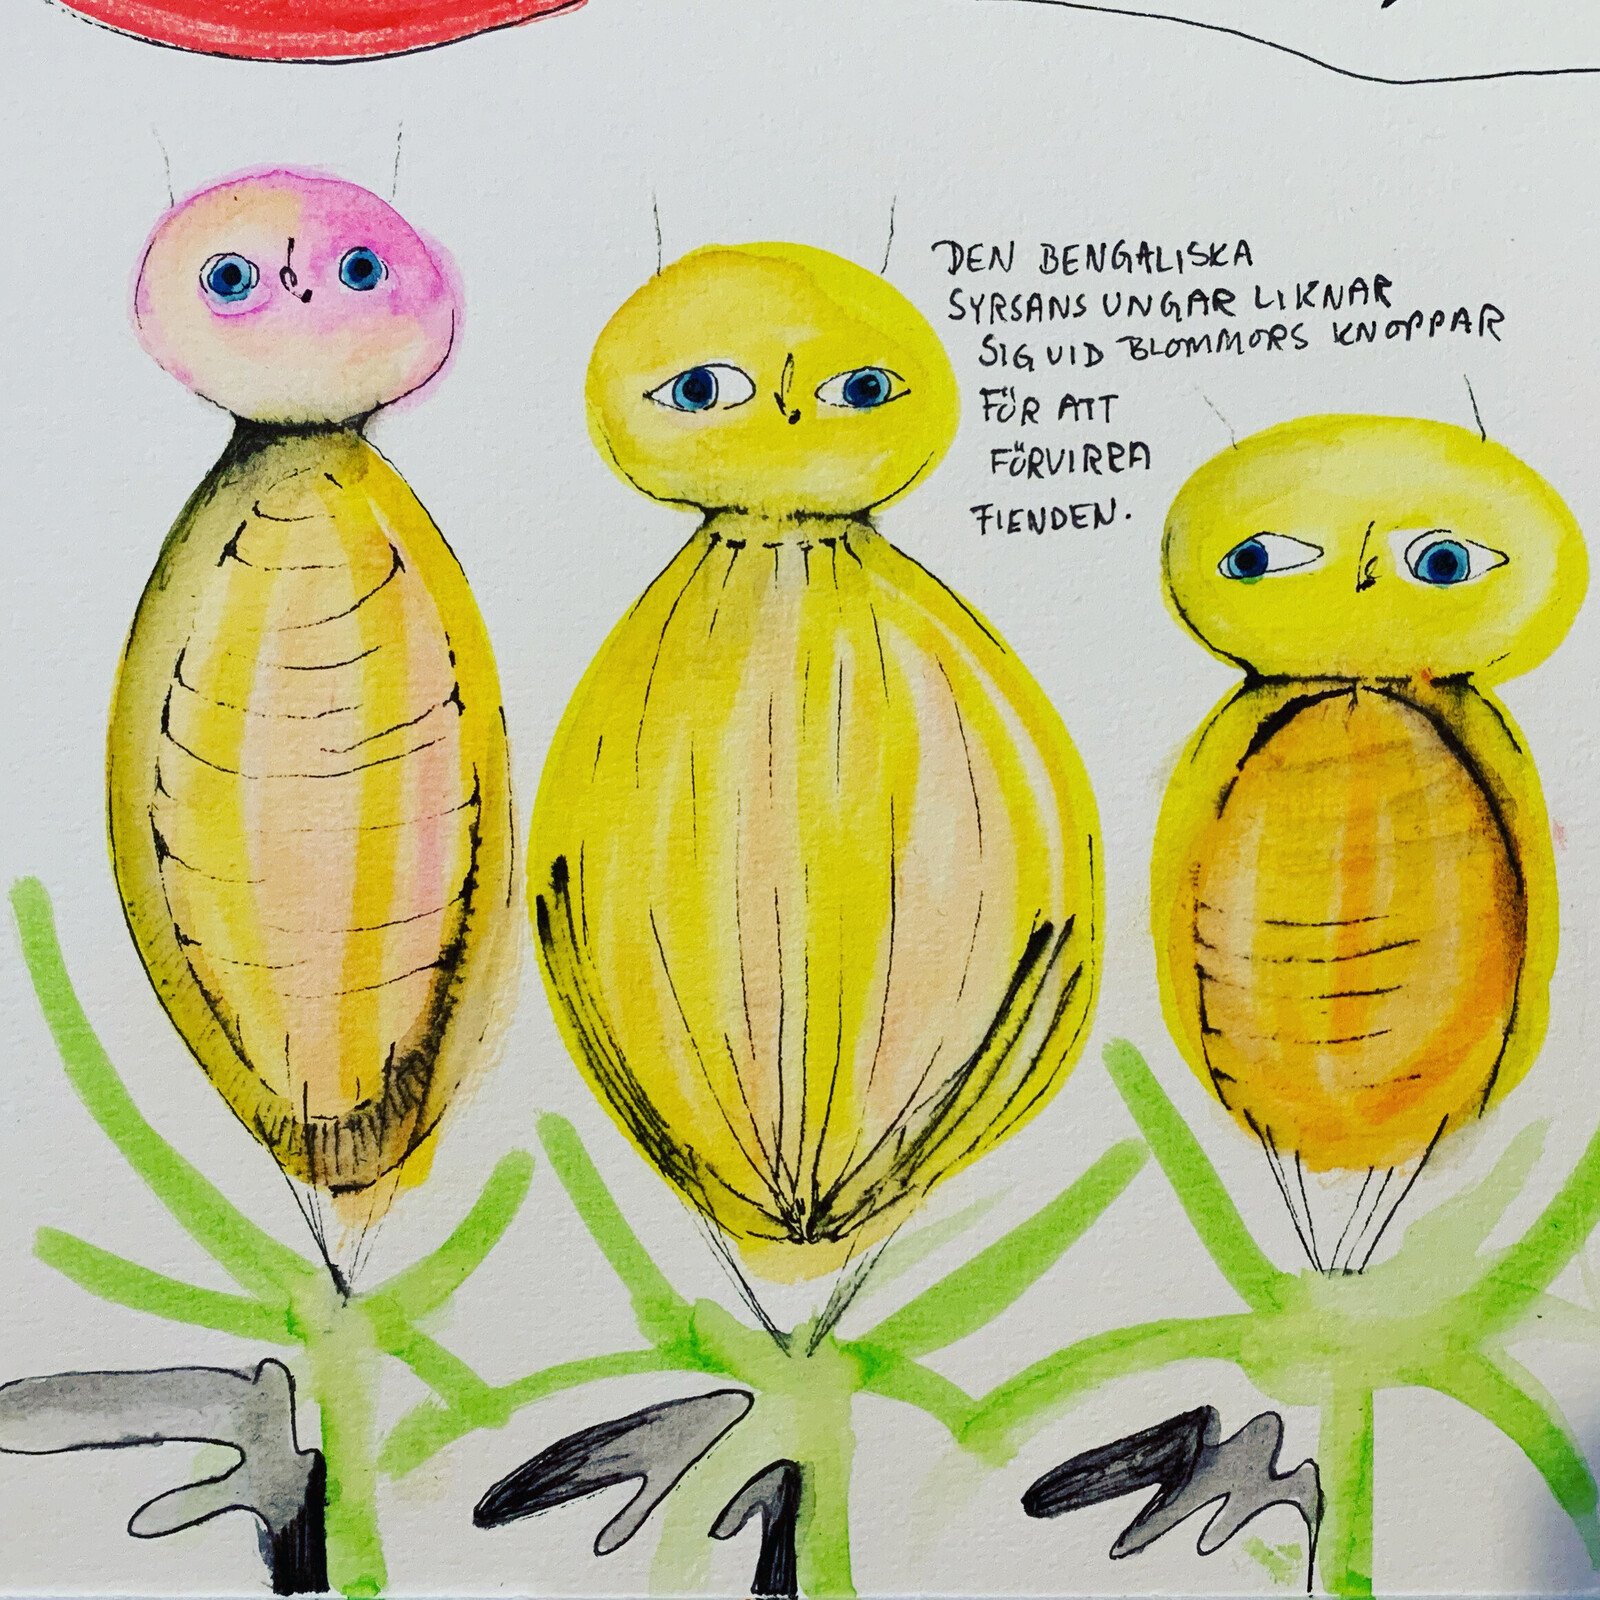 DEN BENGALISKA
SYRSANS UNGAR LIKNAR
SIG VID BLOMMORS KNOPPAR
FÖR ATT
FÖRVIRRA
FIENDEN.